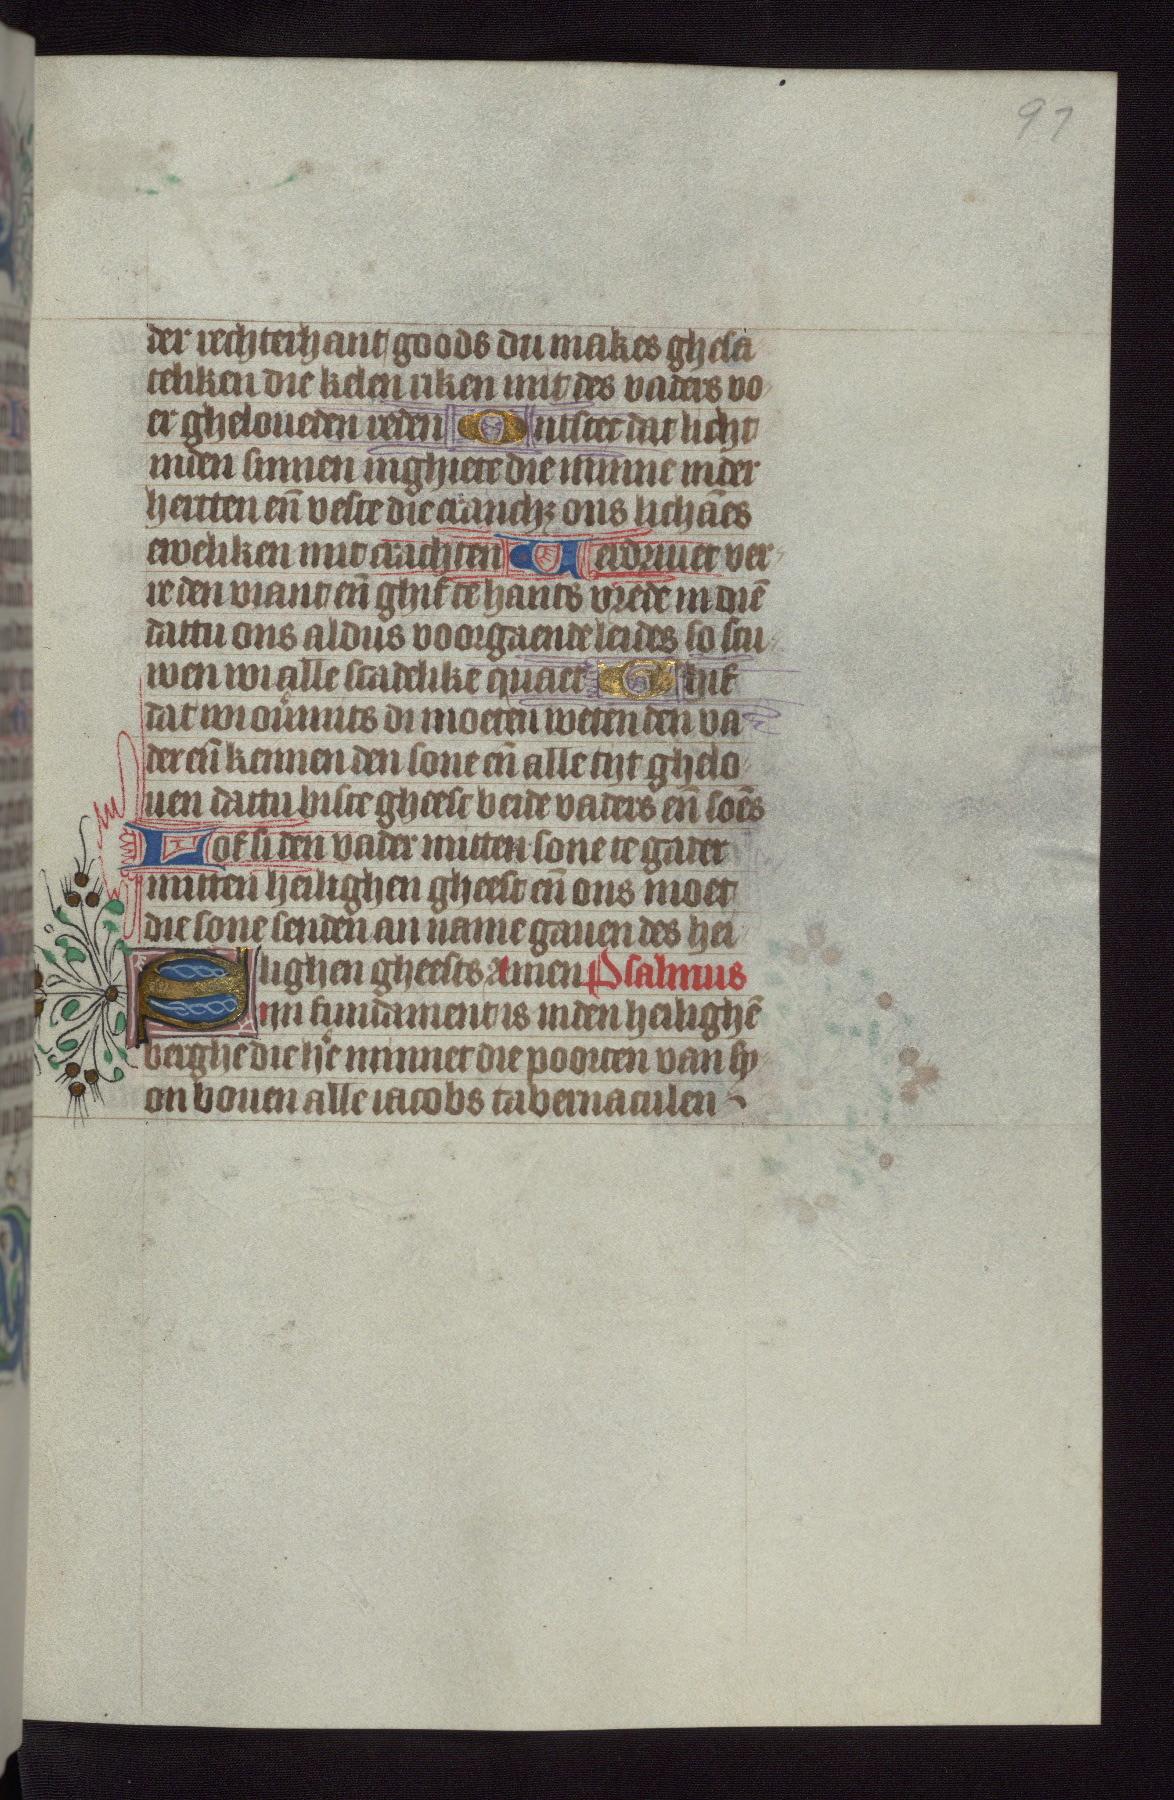 97
der rechterhant goods du makes ghesa
teliken die kelen riken mit des vaders vo
er gheloueden reden Ontstect dat licht
inden sinnen inghiete die minne inder
hertten en̄ veste die crancħ ons lichāēs
eweliken mit crachten Verdriuet ver
re den viant en̄ ghif te hants vrede in diē
dattu ons aldus voorgaende leides so scu
wen wi alle scadelike quaet Ghif
dat wi ouermits di moeten weten den va
der en̄ kennen den sone en̄ alle tijt ghelo
uen dattu biste gheest beide vaders en̄ soēs
Lof si den vader mitten sone te gader
mitten heilighen gheest en̄ ons moet
die sone senden an name gauen des hei
lighen gheests Amen Psalmus
Sijn fundament is inden heilighē
berghe die he minnet die poorten van sy
on bouen alle iacobs tabernaculen